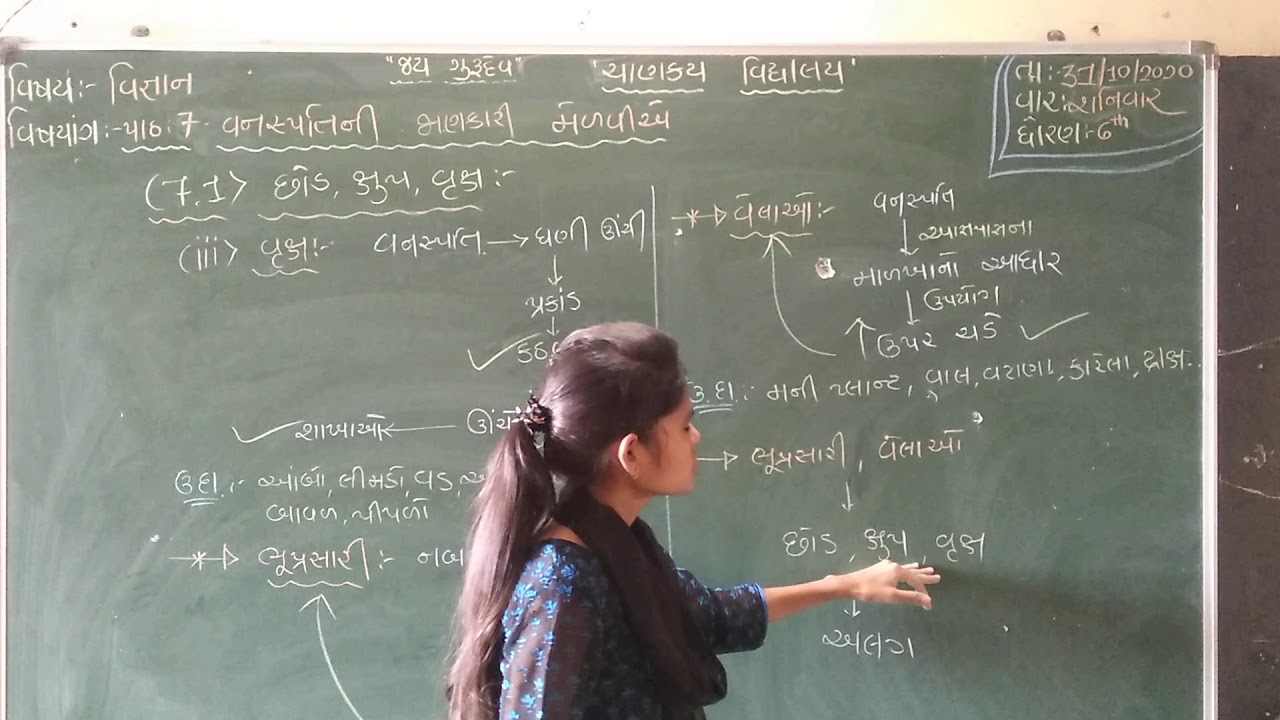 "જય ગુરૂદેવ" 'ચાણક્ય વિદ્યાલય'
વિષય:- વિજ્ઞાન
વિષયાંગ:- પાઠ:7. વનસ્પતિની જાણકારી મેળવીએ
તા:-31/10/2020
વાર:શનિવાર
ધોરણ:-6th
(7.1) છોડ, ક્ષુપ, વૃક્ષ:-
(iii) વૃક્ષ:- વનસ્પતિ → ઘણી ઊંચી
↓
પ્રકાંડ
↓
શાખાઓ ←
ઉદા.:- આંબો, લીમડો, વડ,
બાવળ, પીપળો
ભૂપ્રસારી:-
વેલાઓ:-
વનસ્પતિ
↓ આસપાસના
માળખાનો આધાર
↓ ઉપયોગ
↑ ઉપર ચડે ✓
ઉ.દા.:- મની પ્લાન્ટ, વાલ, વટાણા, કારેલા, દ્રાક્ષ..
→ ભૂપ્રસારી, વેલાઓ
↓
છોડ, ક્ષુપ, વૃક્ષ
↓
અલગ